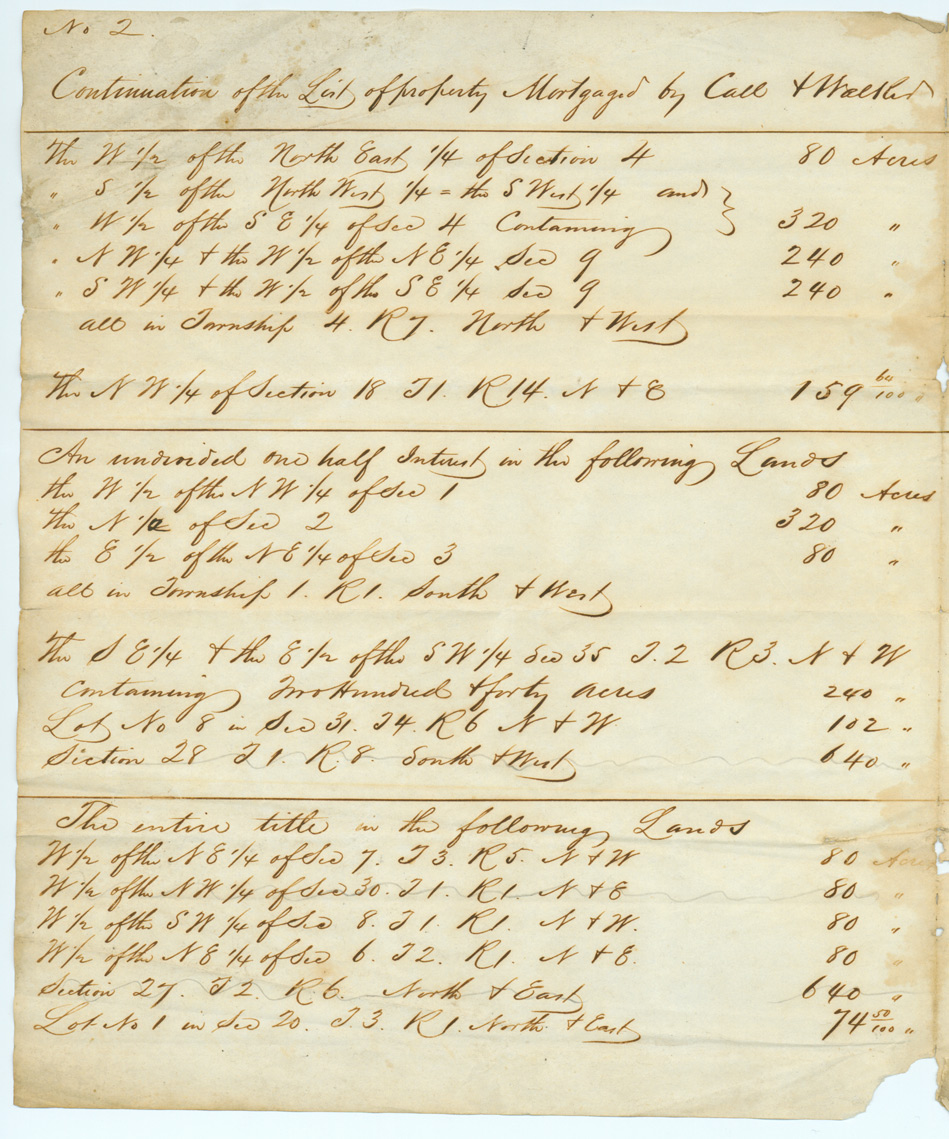 No 2.
Continuation of the List of property Mortgaged by Call & Walker
The W 1/2 of the North East 1/4 of Section 4 80 Acres
" S 1/2 of the North West 1/4 = the S West 1/4 and }
" W 1/2 of the S E 1/4 of Sec 4 Containing } 320 "
" N W 1/4 & the W 1/2 of the N E 1/4 Sec 9 240 "
" S W 1/4 & the W 1/2 of the S E 1/4 Sec 9 240 "
all in Township 4. R 7. North & West
The N W 1/4 of Section 18 T 1. R 14. N & E 159 60/100 "
An undivided one half Interest in the following Lands
the W 1/2 of the N W 1/4 of Sec 1 80 Acres
the N 1/2 of Sec 2 320 "
the E 1/2 of the N E 1/4 of Sec 3 80 "
all in Township 1. R 1. South & West
The S E 1/4 & the E 1/2 of the S W 1/4 Sec 35 T. 2 R 3. N & W
containing Two Hundred & forty acres 240 "
Lot No 8 in Sec 31. T 4. R 6 N & W. 102 "
Section 28 T 1. R. 8. South & West 640 "
The entire title in the following Lands
W 1/2 of the N E 1/4 of Sec 7. T 3. R 5. N & W 80 Acres
W 1/2 of the N W 1/4 of Sec 30. T 1. R 1. N & E 80 "
W 1/2 of the S W 1/4 of Sec 8. T 1. R 1. N & W. 80 "
W 1/2 of the N E 1/4 of Sec 6. T 2. R 1. N & E. 80 "
Section 27. T 2. R. 6. North & East 640 "
Lot No 1 in Sec 20. T. 3. R 1. North & East 74 50/100 "